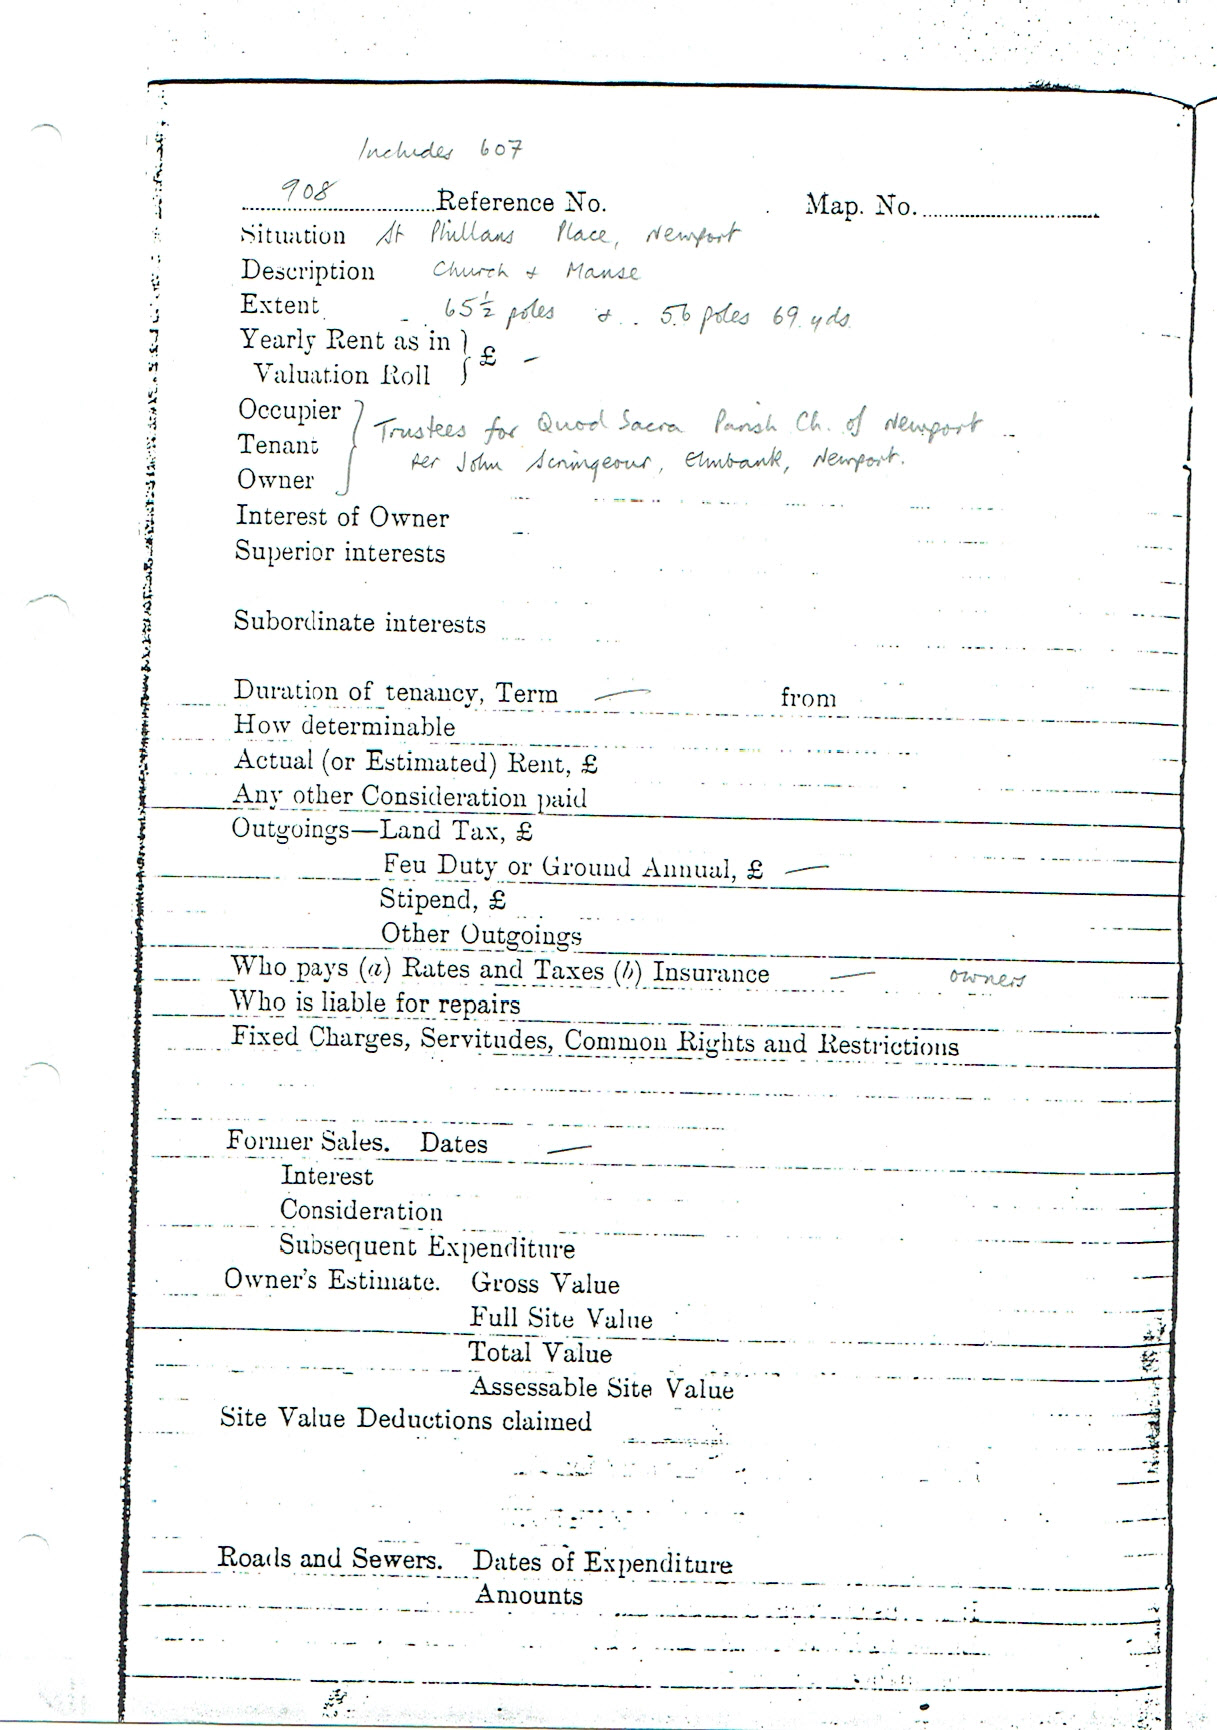 Includes 607
908 Reference No. Map. No.
Situation St Phillans Place, Newport
Description Church & Manse
Extent 65½ poles & 56 poles 69 yds
Yearly Rent as in } £ –
Valuation Roll
Occupier } Trustees for Quod Sacra Parish Ch. of Newport
Tenant per John Scrimgeour, Elmbank, Newport.
Owner
Interest of Owner
Superior interests
Subordinate interests
Duration of tenancy, Term — from
How determinable
Actual (or Estimated) Rent, £
Any other Consideration paid
Outgoings—Land Tax, £
Feu Duty or Ground Annual, £ —
Stipend, £
Other Outgoings
Who pays (a) Rates and Taxes (b) Insurance — owners
Who is liable for repairs
Fixed Charges, Servitudes, Common Rights and Restrictions
Former Sales. Dates —
Interest
Consideration
Subsequent Expenditure
Owner's Estimate. Gross Value
Full Site Value
Total Value
Assessable Site Value
Site Value Deductions claimed
Roads and Sewers. Dates of Expenditure
Amounts